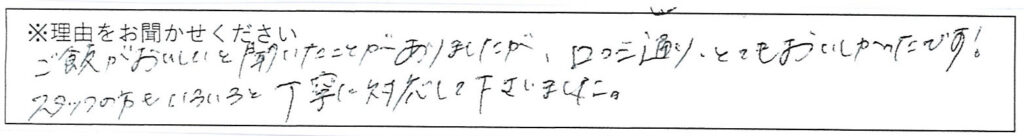 ※理由をお聞かせください
ご飯がおいしいと聞いたことがありましたが、口コミ通り、とてもおいしかったです!
スタッフの方もいろいろと丁寧に対応して下さいました。